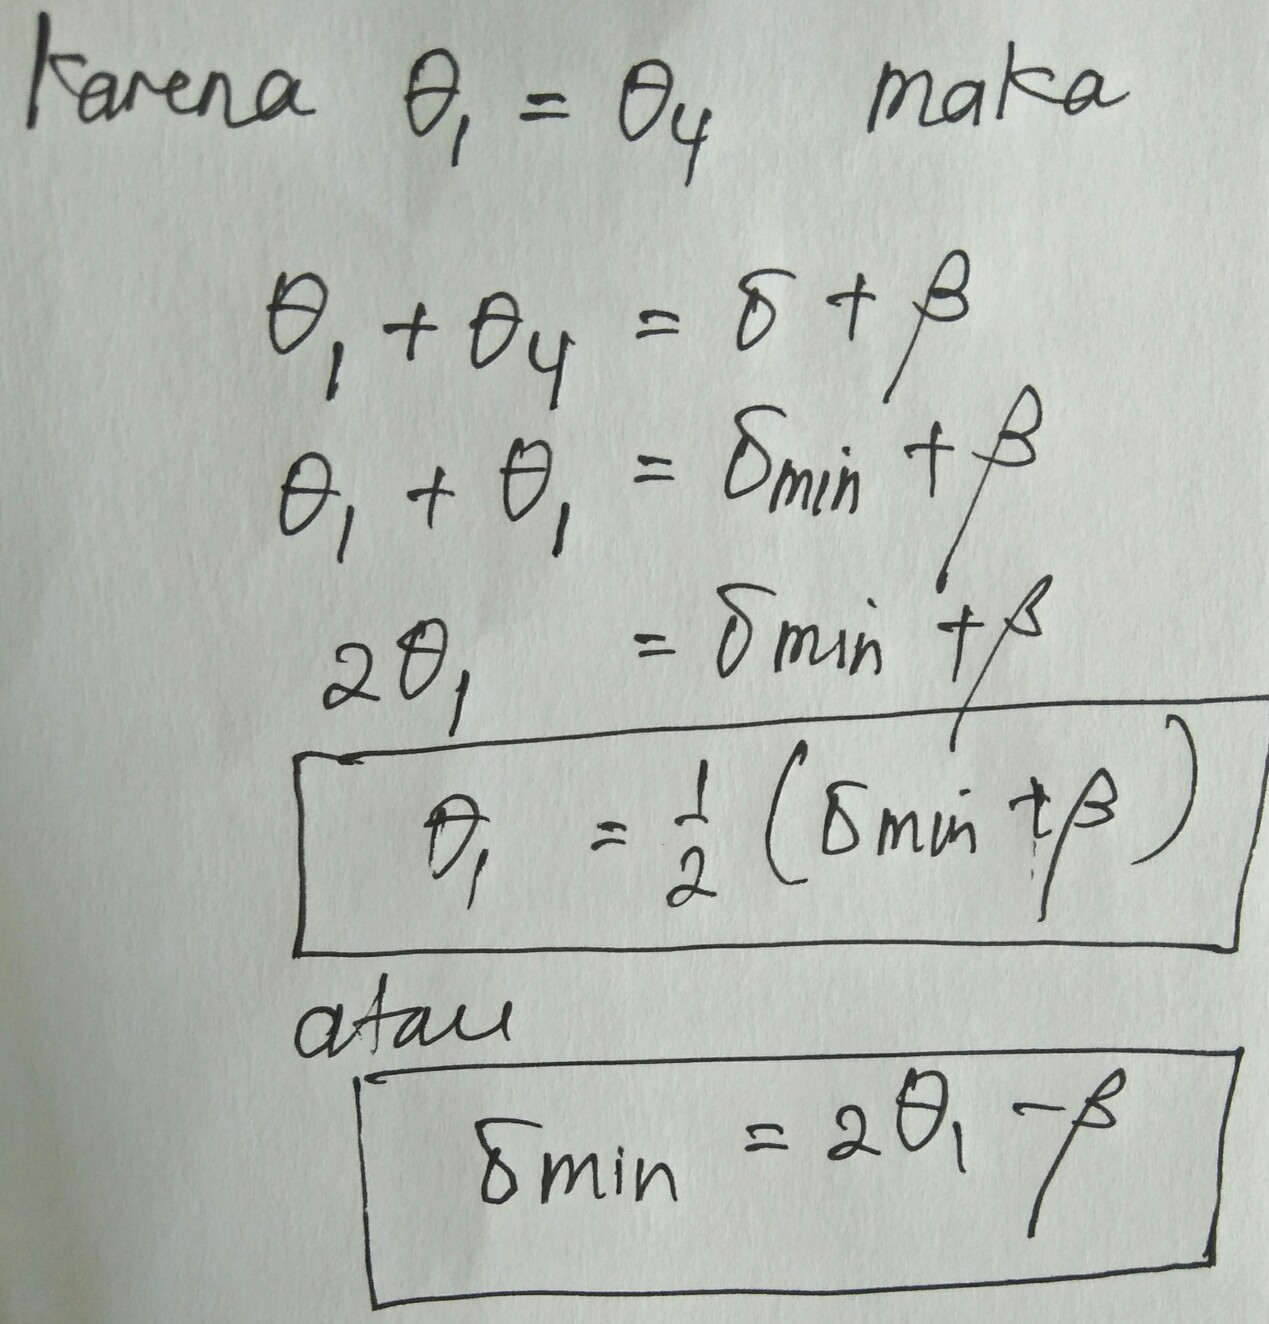 Karena θ₁ = θ₄ maka
θ₁ + θ₄ = δ + β
θ₁ + θ₁ = δmin + β
2θ₁ = δmin + β
θ₁ = 1/2 (δmin + β)
atau
δmin = 2θ₁ - β